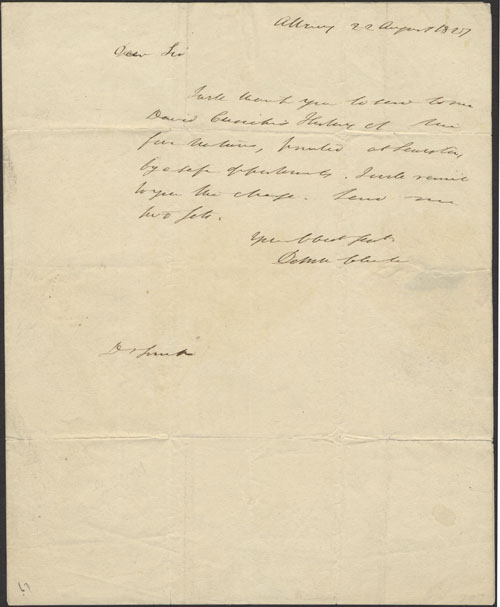 Albany 22 August 1827
Dear Sir
I will thank you to send to me
David Cusick's History of the
five Nations, printed at Lewiston,
by a safe opportunity. I will remit
to you the charge. Send me
two sets.
Your Obed Servt
DeWitt Clinton
Dr Smith